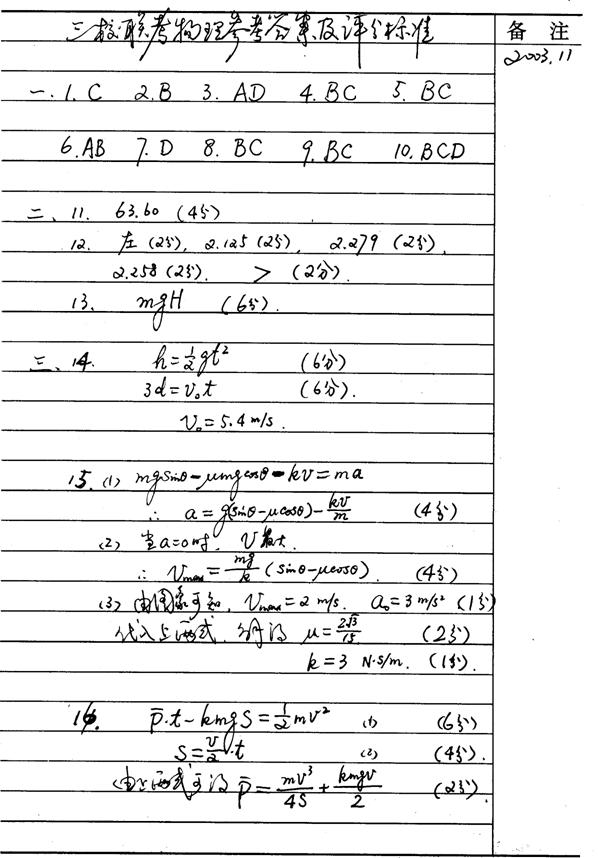 三校联考物理参考答案及评分标准 备 注
2003.11
一. 1. C 2. B 3. AD 4. BC 5. BC
6. AB 7. D 8. BC 9. BC 10. BCD
二、11. 63.60 (4分)
12. 左 (2分), 2.125 (2分), 2.279 (2分),
2.258 (2分). > (2分).
13. mgH (6分).
三、14. h=½gt² (6分)
3d=v₀t (6分).
v₀=5.4 m/s.
15. (1) mgsinθ-μmgcosθ-kv=ma
∴ a=g(sinθ-μcosθ)-kv/m (4分)
(2) 当a=0时, v最大.
∴ Vmax=mg/k (sinθ-μcosθ). (4分)
(3) 由图象可知, Vmax=2 m/s. a₀=3 m/s² (1分)
代入上两式, 解得 μ=2√3/15 (2分)
k=3 N·s/m. (1分).
16. P̄·t-kmgS=½mv² (1) (6分)
S=v/2·t (2) (4分).
由上两式可得 P̄=mv³/4S+kmgv/2 (2分).